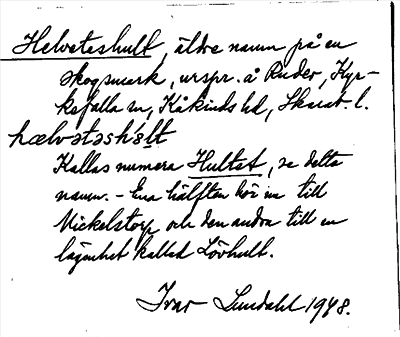 Helveteshult, äldre namn på en
skogsmark, urspr. å Ruder, Kyr-
kefalla sn, Kåkinds hd, Skarab. l.
hælvətəshəlt
Kallas numera Hultet, se detta
namn. – Ena hälften hör nu till
Mickelstorp och den andra till en
lägenhet kallad Lövhult.
Ivar Lundahl 1948.